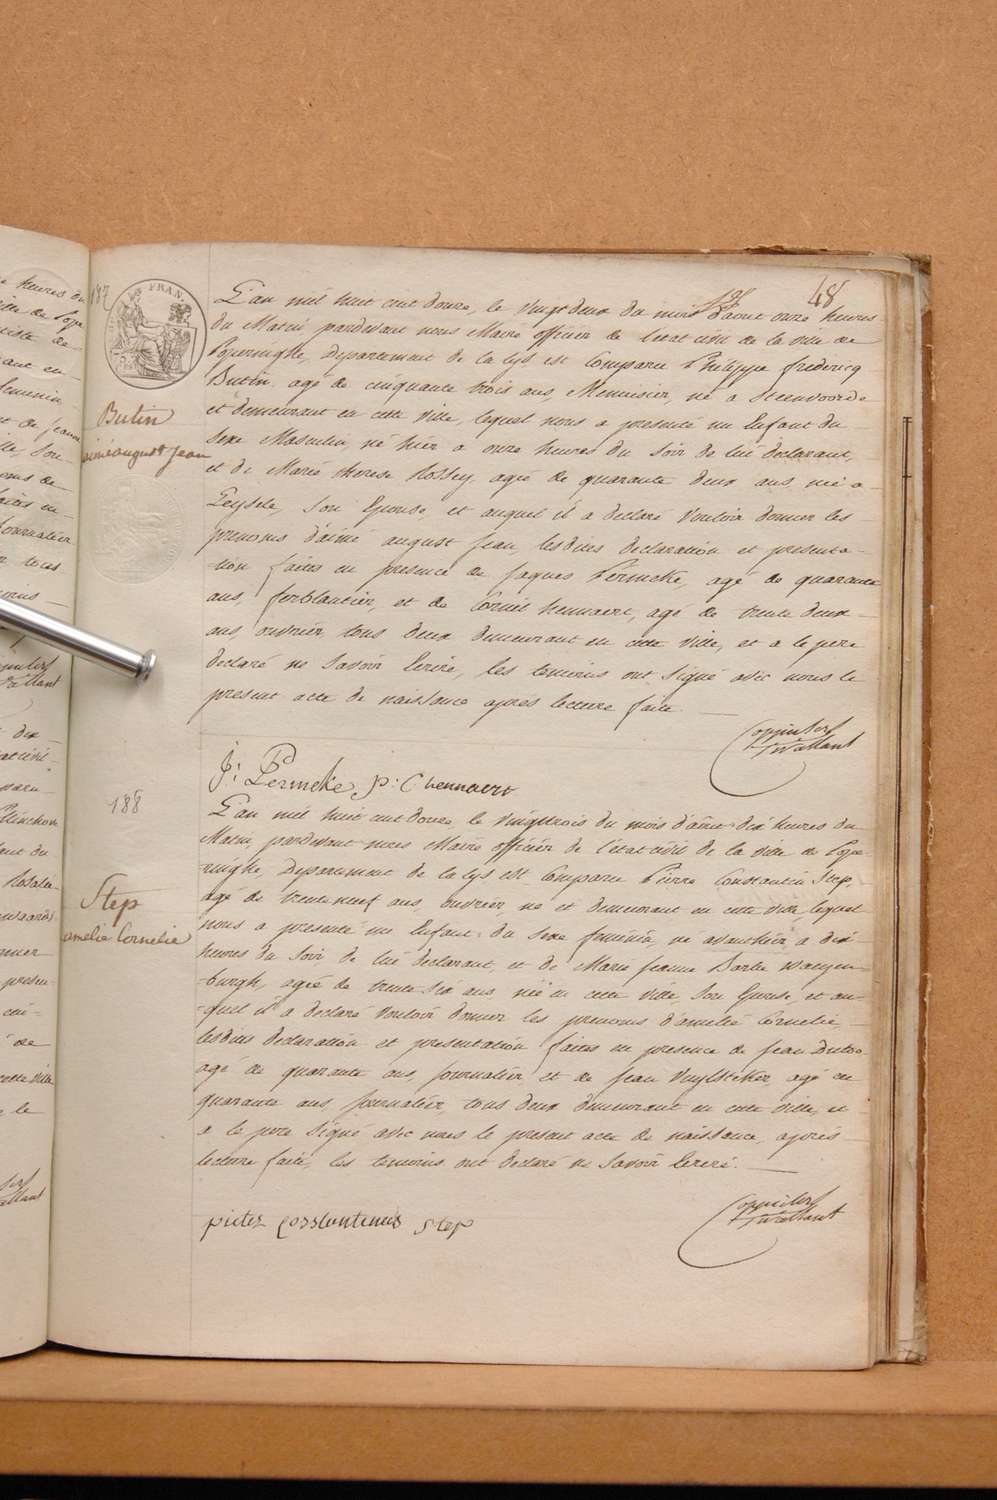 48
187
FRAN
L'an mil huit cent douze, le vingt deux du mois d'aout onze heures
du Matin pardevant nous Maire officier de l'etat civil de la ville de
Poperinghe, Departement de la Lys est Comparu Philippe fredericq
Butin, agé de cinquante trois ans, Menuisier, né a Steenvoorde
et demeurant en cette ville, lequel nous a presenté un Enfant du
sexe Masculin, né hier a onze heures du soir de lui declarant,
et de Marie therese Rossey, agée de quarante deux ans, née a
Leysele, son Epouse, et auquel il a declaré vouloir donner les
prenoms d'aimé august jean, lesdites declaration et presenta-
tion faites en presence de jaques Permeke, agé de quarante
ans, ferblantier, et de Corneil hennaert, agé de trente deux
ans, ouvrier, tous deux demeurant en cette ville, et a le pere
declaré ne savoir Ecrire, les temoins ont signé avec nous le
present acte de naissance après lecture faite.
Butin
aimé august jean
J: Permeke p: C hennaert
188
L'an mil huit cent douze, le vingt trois du mois d'aout dix heures du
Matin, pardevant nous Maire officier de l'etat civil de la ville de Pope-
ringhe, Departement de la Lys est Comparu Pierre Constantin Step,
agé de trente neuf ans, ouvrier, né et demeurant en cette ville, lequel
nous a presenté un Enfant du sexe feminin, né avant hier a dix
heures du soir de lui declarant, et de Marie jeanne Barbe waeyen-
-burgh, agée de trente six ans née en cette ville, son Epouse, et au-
-quel il a declaré vouloir donner les prenoms d'amelie Cornelie,
lesdites declaration et presentation faites en presence de jean
agé de quarante ans, journalier, et de jean Vuylsteker, agé de
quarante ans, journalier, tous deux demeurant en cette ville, et
a le pere signé avec nous le present acte de naissance, après
lecture faite, les temoins ont declaré ne savoir Ecrire.
Step
amelie Cornelie
pieter Constantinus Step